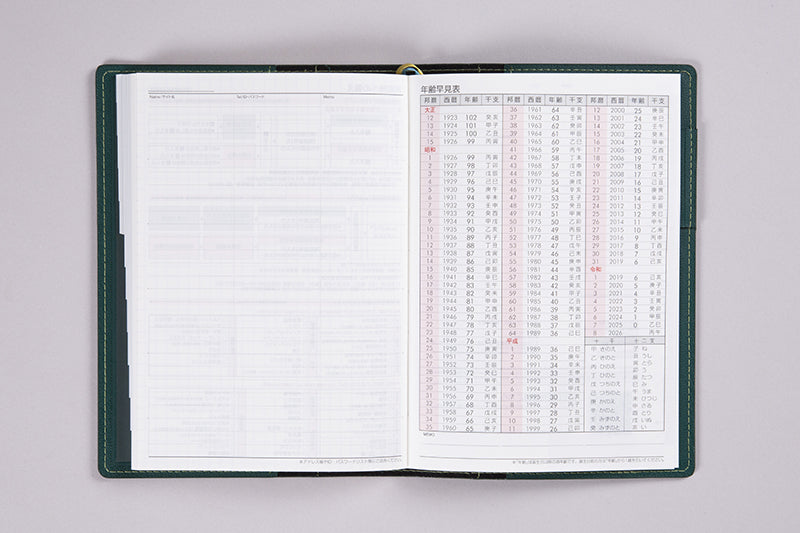 Name・サイト名 Tel・ID・パスワード Memo
年齢早見表
邦暦 西暦 年齢 干支
大正
12 1923 102 癸亥
13 1924 101 甲子
14 1925 100 乙丑
15 1926 99 丙寅
昭和
1 1926 99 丙寅
2 1927 98 丁卯
3 1928 97 戊辰
4 1929 96 己巳
5 1930 95 庚午
6 1931 94 辛未
7 1932 93 壬申
8 1933 92 癸酉
9 1934 91 甲戌
10 1935 90 乙亥
11 1936 89 丙子
12 1937 88 丁丑
13 1938 87 戊寅
14 1939 86 己卯
15 1940 85 庚辰
16 1941 84 辛巳
17 1942 83 壬午
18 1943 82 癸未
19 1944 81 甲申
20 1945 80 乙酉
21 1946 79 丙戌
22 1947 78 丁亥
23 1948 77 戊子
24 1949 76 己丑
25 1950 75 庚寅
26 1951 74 辛卯
27 1952 73 壬辰
28 1953 72 癸巳
29 1954 71 甲午
30 1955 70 乙未
31 1956 69 丙申
32 1957 68 丁酉
33 1958 67 戊戌
34 1959 66 己亥
35 1960 65 庚子
邦暦 西暦 年齢 干支
36 1961 64 辛丑
37 1962 63 壬寅
38 1963 62 癸卯
39 1964 61 甲辰
40 1965 60 乙巳
41 1966 59 丙午
42 1967 58 丁未
43 1968 57 戊申
44 1969 56 己酉
45 1970 55 庚戌
46 1971 54 辛亥
47 1972 53 壬子
48 1973 52 癸丑
49 1974 51 甲寅
50 1975 50 乙卯
51 1976 49 丙辰
52 1977 48 丁巳
53 1978 47 戊午
54 1979 46 己未
55 1980 45 庚申
56 1981 44 辛酉
57 1982 43 壬戌
58 1983 42 癸亥
59 1984 41 甲子
60 1985 40 乙丑
61 1986 39 丙寅
62 1987 38 丁卯
63 1988 37 戊辰
64 1989 36 己巳
平成
1 1989 36 己巳
2 1990 35 庚午
3 1991 34 辛未
4 1992 33 壬申
5 1993 32 癸酉
6 1994 31 甲戌
7 1995 30 乙亥
8 1996 29 丙子
9 1997 28 丁丑
10 1998 27 戊寅
11 1999 26 己卯
邦暦 西暦 年齢 干支
12 2000 25 庚辰
13 2001 24 辛巳
14 2002 23 壬午
15 2003 22 癸未
16 2004 21 甲申
17 2005 20 乙酉
18 2006 19 丙戌
19 2007 18 丁亥
20 2008 17 戊子
21 2009 16 己丑
22 2010 15 庚寅
23 2011 14 辛卯
24 2012 13 壬辰
25 2013 12 癸巳
26 2014 11 甲午
27 2015 10 乙未
28 2016 9 丙申
29 2017 8 丁酉
30 2018 7 戊戌
31 2019 6 己亥
令和
1 2019 6 己亥
2 2020 5 庚子
3 2021 4 辛丑
4 2022 3 壬寅
5 2023 2 癸卯
6 2024 1 甲辰
7 2025 0 乙巳
8 2026 丙午
十干 十二支
甲 きのえ 子 ね
乙 きのと 丑 うし
丙 ひのえ 寅 とら
丁 ひのと 卯 う
戊 つちのえ 辰 たつ
己 つちのと 巳 み
庚 かのえ 午 うま
辛 かのと 未 ひつじ
壬 みずのえ 申 さる
癸 みずのと 酉 とり
戌 いぬ
亥 い
MEMO